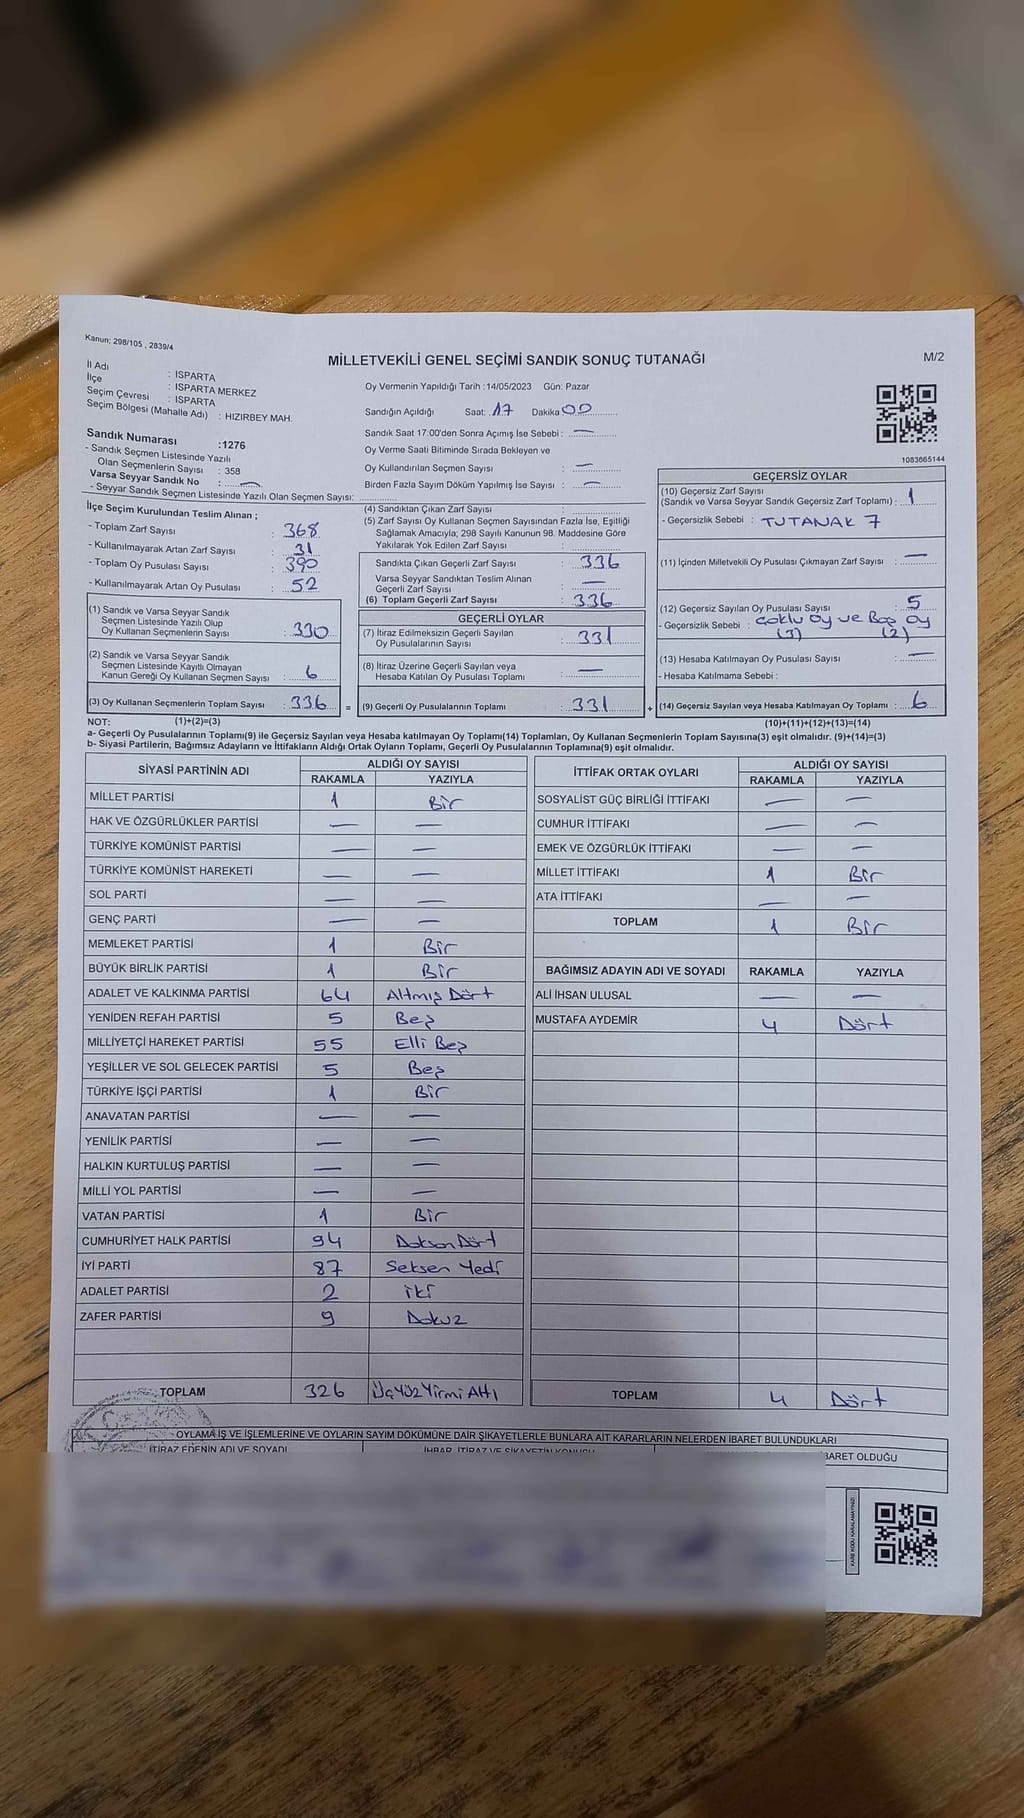 Kanun; 298/105 , 2839/4
MİLLETVEKİLİ GENEL SEÇİMİ SANDIK SONUÇ TUTANAĞI
M/2
İl Adı : ISPARTA
İlçe : ISPARTA MERKEZ
Seçim Çevresi : ISPARTA
Seçim Bölgesi (Mahalle Adı) : HIZIRBEY MAH.
Oy Vermenin Yapıldığı Tarih :14/05/2023 Gün: Pazar
Sandığın Açıldığı Saat: 17 Dakika 00
Sandık Saat 17:00'den Sonra Açımış İse Sebebi : —
Oy Verme Saati Bitiminde Sırada Bekleyen ve
Oy Kullandırılan Seçmen Sayısı : —
Birden Fazla Sayım Döküm Yapılmış İse Sayısı : —
1083665144
Sandık Numarası :1276
- Sandık Seçmen Listesinde Yazılı
Olan Seçmenlerin Sayısı : 358
Varsa Seyyar Sandık No : —
- Seyyar Sandık Seçmen Listesinde Yazılı Olan Seçmen Sayısı:
İlçe Seçim Kurulundan Teslim Alınan ;
- Toplam Zarf Sayısı : 368
- Kullanılmayarak Artan Zarf Sayısı : 31
- Toplam Oy Pusulası Sayısı : 390
- Kullanılmayarak Artan Oy Pusulası : 52
(1) Sandık ve Varsa Seyyar Sandık
Seçmen Listesinde Yazılı Olup
Oy Kullanan Seçmenlerin Sayısı : 330
(2) Sandık ve Varsa Seyyar Sandık
Seçmen Listesinde Kayıtlı Olmayan
Kanun Gereği Oy Kullanan Seçmen Sayısı : 6
(3) Oy Kullanan Seçmenlerin Toplam Sayısı : 336 =
(4) Sandıktan Çıkan Zarf Sayısı :
(5) Zarf Sayısı Oy Kullanan Seçmen Sayısından Fazla İse, Eşitliği
Sağlamak Amacıyla; 298 Sayılı Kanunun 98. Maddesine Göre
Yakılarak Yok Edilen Zarf Sayısı :
Sandıkta Çıkan Geçerli Zarf Sayısı : 336
Varsa Seyyar Sandıktan Teslim Alınan
Geçerli Zarf Sayısı : —
(6) Toplam Geçerli Zarf Sayısı : 336
GEÇERLİ OYLAR
(7) İtiraz Edilmeksizin Geçerli Sayılan
Oy Pusulalarının Sayısı : 331
(8) İtiraz Üzerine Geçerli Sayılan veya
Hesaba Katılan Oy Pusulası Toplamı : —
(9) Geçerli Oy Pusulalarının Toplamı : 331 +
GEÇERSİZ OYLAR
(10) Geçersiz Zarf Sayısı
(Sandık ve Varsa Seyyar Sandık Geçersiz Zarf Toplamı) : 1
- Geçersizlik Sebebi : TUTANAK 7
(11) İçinden Milletvekili Oy Pusulası Çıkmayan Zarf Sayısı : —
(12) Geçersiz Sayılan Oy Pusulası Sayısı : 5
- Geçersizlik Sebebi : Çoklu Oy ve Boş Oy
(3) (2)
(13) Hesaba Katılmayan Oy Pusulası Sayısı : —
- Hesaba Katılmama Sebebi :
(14) Geçersiz Sayılan veya Hesaba Katılmayan Oy Toplamı : 6
NOT: (1)+(2)=(3) (10)+(11)+(12)+(13)=(14)
a- Geçerli Oy Pusulalarının Toplamı(9) ile Geçersiz Sayılan veya Hesaba katılmayan Oy Toplamı(14) Toplamları, Oy Kullanan Seçmenlerin Toplam Sayısına(3) eşit olmalıdır. (9)+(14)=(3)
b- Siyasi Partilerin, Bağımsız Adayların ve İttifakların Aldığı Ortak Oyların Toplamı, Geçerli Oy Pusulalarının Toplamına(9) eşit olmalıdır.
SİYASİ PARTİNİN ADI ALDIĞI OY SAYISI
RAKAMLA YAZIYLA
MİLLET PARTİSİ 1 Bir
HAK VE ÖZGÜRLÜKLER PARTİSİ — —
TÜRKİYE KOMÜNİST PARTİSİ — —
TÜRKİYE KOMÜNİST HAREKETİ — —
SOL PARTİ — —
GENÇ PARTİ — —
MEMLEKET PARTİSİ 1 Bir
BÜYÜK BİRLİK PARTİSİ 1 Bir
ADALET VE KALKINMA PARTİSİ 64 Altmış Dört
YENİDEN REFAH PARTİSİ 5 Beş
MİLLİYETÇİ HAREKET PARTİSİ 55 Elli Beş
YEŞİLLER VE SOL GELECEK PARTİSİ 5 Beş
TÜRKİYE İŞÇİ PARTİSİ 1 Bir
ANAVATAN PARTİSİ — —
YENİLİK PARTİSİ — —
HALKIN KURTULUŞ PARTİSİ — —
MİLLİ YOL PARTİSİ — —
VATAN PARTİSİ 1 Bir
CUMHURİYET HALK PARTİSİ 94 Doksan Dört
İYİ PARTİ 87 Seksen Yedi
ADALET PARTİSİ 2 iki
ZAFER PARTİSİ 9 Dokuz
TOPLAM 326 ÜçYüz Yirmi Altı
İTTİFAK ORTAK OYLARI ALDIĞI OY SAYISI
RAKAMLA YAZIYLA
SOSYALİST GÜÇ BİRLİĞİ İTTİFAKI — —
CUMHUR İTTİFAKI — —
EMEK VE ÖZGÜRLÜK İTTİFAKI — —
MİLLET İTTİFAKI 1 Bir
ATA İTTİFAKI — —
TOPLAM 1 Bir
BAĞIMSIZ ADAYIN ADI VE SOYADI RAKAMLA YAZIYLA
ALİ İHSAN ULUSAL — —
MUSTAFA AYDEMİR 4 Dört
TOPLAM 4 Dört
OYLAMA İŞ VE İŞLEMLERİNE VE OYLARIN SAYIM DÖKÜMÜNE DAİR ŞİKAYETLERLE BUNLARA AİT KARARLARIN NELERDEN İBARET BULUNDUKLARI
İTİRAZ EDENİN ADI VE SOYADI İHBAR, İTİRAZ VE ŞİKAYETİN KONUSU BARET OLDUĞU
KARE KODU KARALAMAYINIZ!